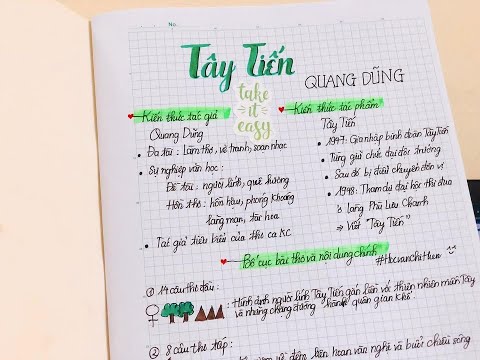 No.
Tây Tiến
QUANG DŨNG
take it easy
Kiến thức tác giả
Quang Dũng
• Đa tài: Làm thơ, vẽ tranh, soạn nhạc
• Sự nghiệp văn học:
Đề tài: người lính, quê hương
Hồn thơ: hồn hậu, phóng khoáng
lãng mạn, tài hoa
• Tác giả tiêu biểu của thi ca KC
Kiến thức tác phẩm
Tây Tiến
• 1947: Gia nhập binh đoàn Tây Tiến
• Từng giữ chức đại đội trưởng
• Sau đó bị điều chuyển đơn vị
• 1948: Tham dự đại hội thi đua
ở làng Phù Lưu Chanh
⇒ Viết "Tây Tiến"
Bố cục bài thơ và nội dung chính
#tbcvanchithem
① 14 câu thơ đầu:
: Hình ảnh người lính Tây Tiến gắn liền với thiên nhiên miền Tây
và những chặng đường hành quân gian khổ.
② 8 câu thơ tiếp:
liên hoan văn nghệ và buổi chiều sông